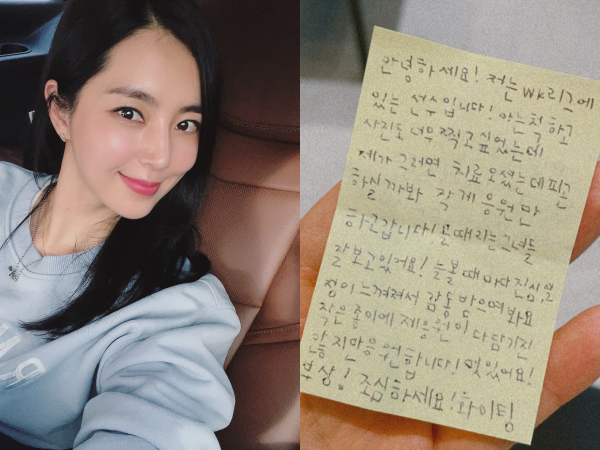 안녕하세요! 저는 WK리그에
있는 선수입니다! 아는척하고
사진도 너무 찍고싶었는데
제가 그러면 치료오셨는데 피곤
하실까봐 작게 응원만
하고갑니다! 골때리는그녀들
잘보고있어요! 늘볼때마다 진심, 열
정이 느껴져서 감동 받으며 봐요
작은종이에 제응원이 다담기진
않지만응원합니다! 멋있어요!
부상! 조심하세요! 화이팅